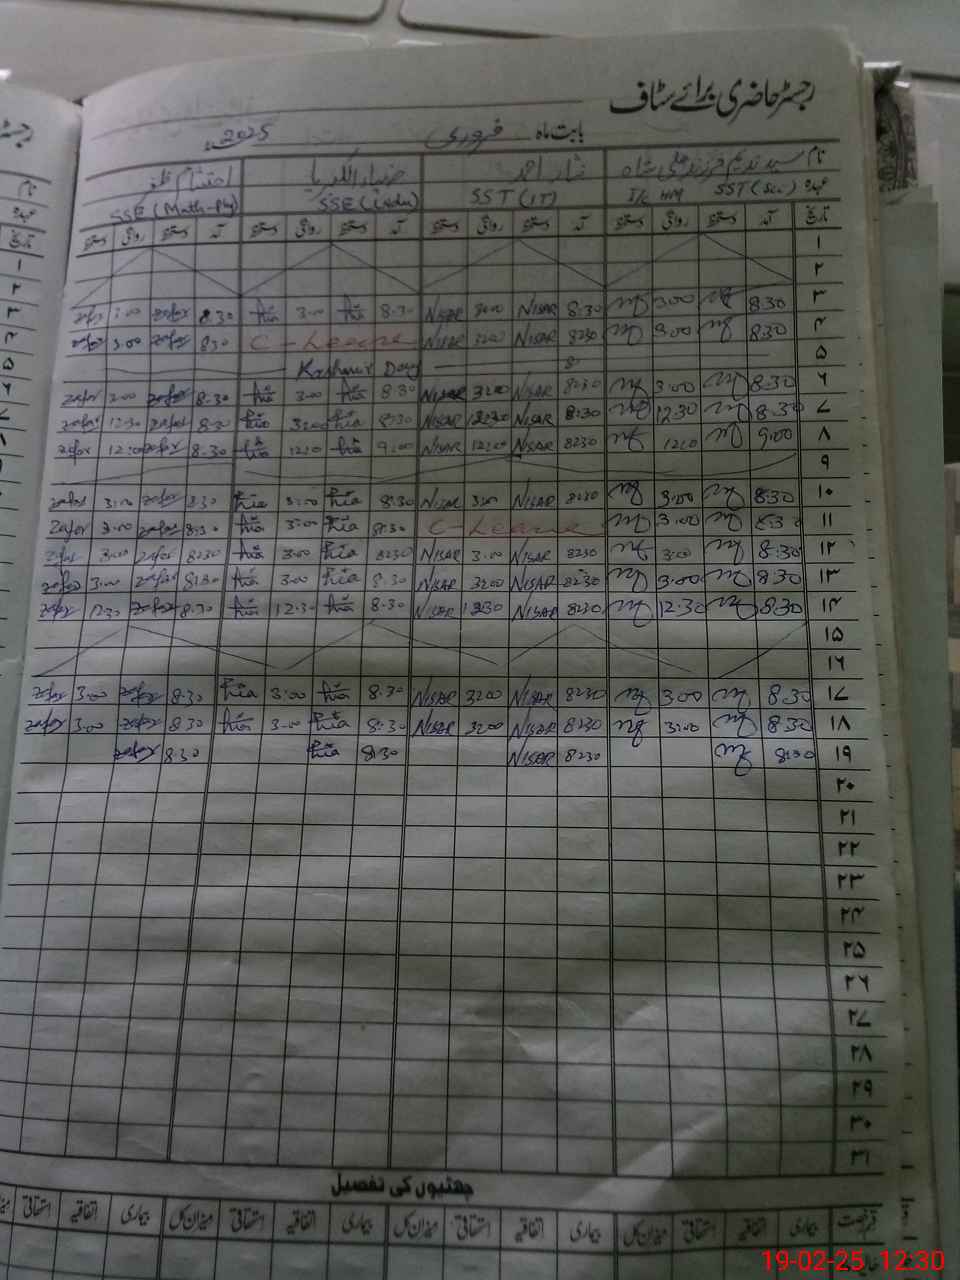 رجسٹر حاضری برائے سٹاف
بابت ماہ فروری 2025
نام سید ندیم فرزند علی شاہ نثار احمد ضیاء اکبر احتشام ظفر
عہدہ SST (Sci) I/c HM SST (IT) SSE (Math-Phy)
تاریخ آمد دستخط روانگی دستخط آمد دستخط روانگی دستخط آمد دستخط روانگی دستخط آمد دستخط روانگی دستخط
۱
۲
۳ 8.30 3.00 8.30 NISAR 3:00 NISAR 8.30 Zia 3.00 Zia 8.30 Zafar 3.00 Zafar
۴ 8.30 3.00 8:30 NISAR 3:00 NISAR C-Leave 8.30 Zafar 3.00 Zafar
۵ Kashmir Day
۶ 8.30 3.00 8:30 NISAR 3:00 NISAR 8.30 Zia 3.00 Zia 8.30 Zafar 3.00 Zafar
۷ 8.30 12.30 8:30 NISAR 12:30 NISAR 8:30 Zia Zia 8.30 Zafar 12.30 Zafar
۸ 9.00 8:30 NISAR 12:00 NISAR 9.00 Zia Zia 8.30 Zafar 12:00 Zafar
۹
۱۰ 8.30 3.00 8:30 NISAR 3:00 NISAR 8.30 Zia 3:00 Zia 8.30 Zafar 3:00 Zafar
۱۱ 8.30 3.00 C-Leave 8:30 Zia 3:00 Zia 8.30 Zafar 3:00 Zafar
۱۲ 8.30 3:00 8:30 NISAR 3:00 NISAR 8:30 Zia 3.00 Zia 8:30 Zafar 3:00 Zafar
۱۳ 8.30 3.00 8:30 NISAR 3:00 NISAR 8.30 Zia 3.00 Zia 8:30 Zafar 3:00 Zafar
۱۴ 8.30 12.30 8:30 NISAR 12:30 NISAR 8.30 Zia 12.30 Zia 8.30 Zafar 12.30 Zafar
۱۵
۱۶
۱۷ 8.30 3.00 8:30 NISAR 3:00 NISAR 8.30 Zia 3:00 Zia 8.30 Zafar 3.00 Zafar
۱۸ 8.30 3:00 8:30 NISAR 3:00 NISAR 8.30 Zia 3.00 Zia 8.30 Zafar 3:00 Zafar
۱۹ 8:30 8:30 NISAR 8:30 Zia 8.30 Zafar
۲۰
۲۱
۲۲
۲۳
۲۴
۲۵
۲۶
۲۷
۲۸
۲۹
۳۰
۳۱
چھٹیوں کی تفصیل
قسم رخصت بیماری اتفاقیہ استحقاقی میزان کل بیماری اتفاقیہ استحقاقی میزان کل بیماری اتفاقیہ استحقاقی میزان کل بیماری اتفاقیہ استحقاقی
19-02-25 12:30